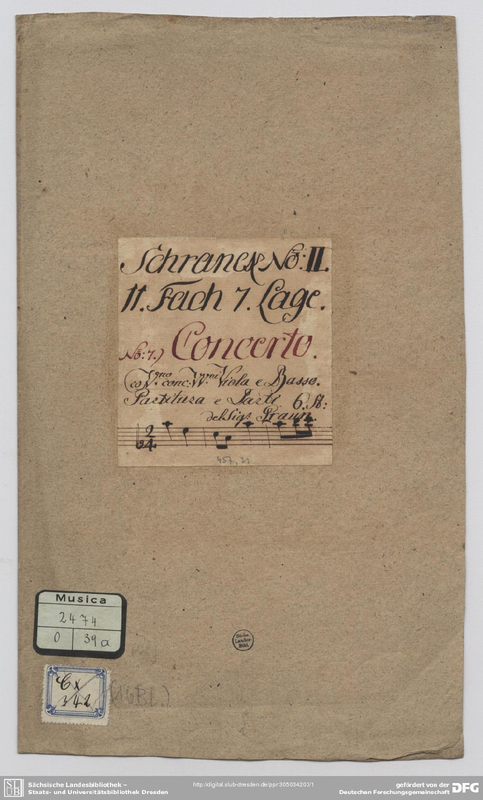 Schranck No: II.
11. Fach 7. Lage.
No: 7.) Concerto.
co V.no conc: V.V.ni Viola e Basso.
Partitura e Parti 6. St:
del Sig.
2/4
Musica
2474
O 39a
Cx
342
(16 Bl.)
Sächs.
Landes-
Bibl.
Sächsische Landesbibliothek –
Staats- und Universitätsbibliothek Dresden
http://digital.slub-dresden.de/ppn305034203/1
gefördert von der
Deutschen Forschungsgemeinschaft DFG